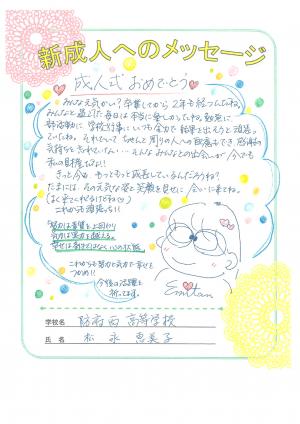 新成人へのメッセージ
成人式おめでとう
みんな元気かい？卒業してから2年も経つんだね。
みんなと過ごした毎日は本当に楽しかったね。勉強に
部活動に学校行事に、いつも全力で結果を出そうと頑張っ
ていたね。それでいて、ちゃんと周りの人への配慮もでき、感謝の
気持ちも忘れていない…そんなみんなとの出会いが、今でも
私の財産だよ!!
きっと今は、もっともっと成長しているんだろうな?
たまには、その元気な姿と笑顔を見せに会いに来てね。
(よく来てくれる子も
これからも頑張ろう!!
努力は素質を上回り
気力は実力を越える。
幸せは
これからも努力と気力で幸せを
つかめ!!
今後の活躍を
祈ってます。
Emitan
学校名 防府西高等学校
氏名 松永 恵美子